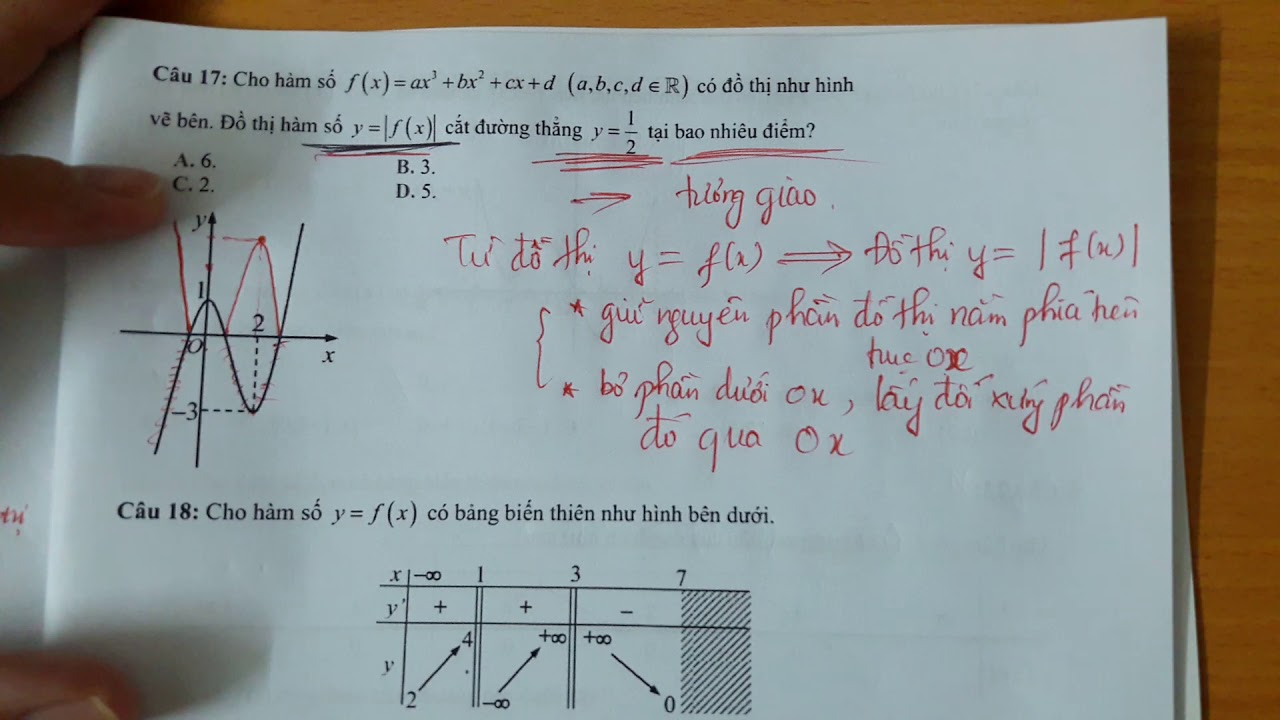 Câu 17: Cho hàm số f(x)=ax³+bx²+cx+d (a,b,c,d∈ℝ) có đồ thị như hình
vẽ bên. Đồ thị hàm số y=|f(x)| cắt đường thẳng y=1/2 tại bao nhiêu điểm?
A. 6. B. 3.
C. 2. D. 5.
→ tương giao.
Từ đồ thị y = f(x) ⟹ Đồ thị y = |f(x)|
* giữ nguyên phần đồ thị nằm phía trên
trục Ox
* bỏ phần dưới Ox, lấy đối xứng phần
đó qua Ox
y
1
2
O
x
-3
Câu 18: Cho hàm số y=f(x) có bảng biến thiên như hình bên dưới.
x -∞ 1 3 7
y' + + -
4 +∞ +∞
y
2 -∞ 0